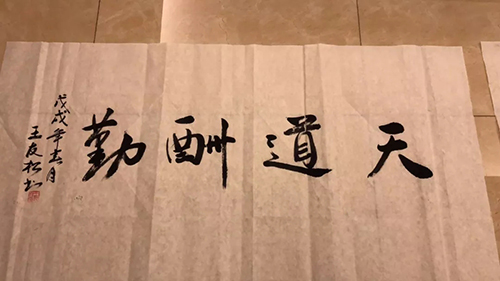 天道酬勤
戊戌年吉月
王友松书